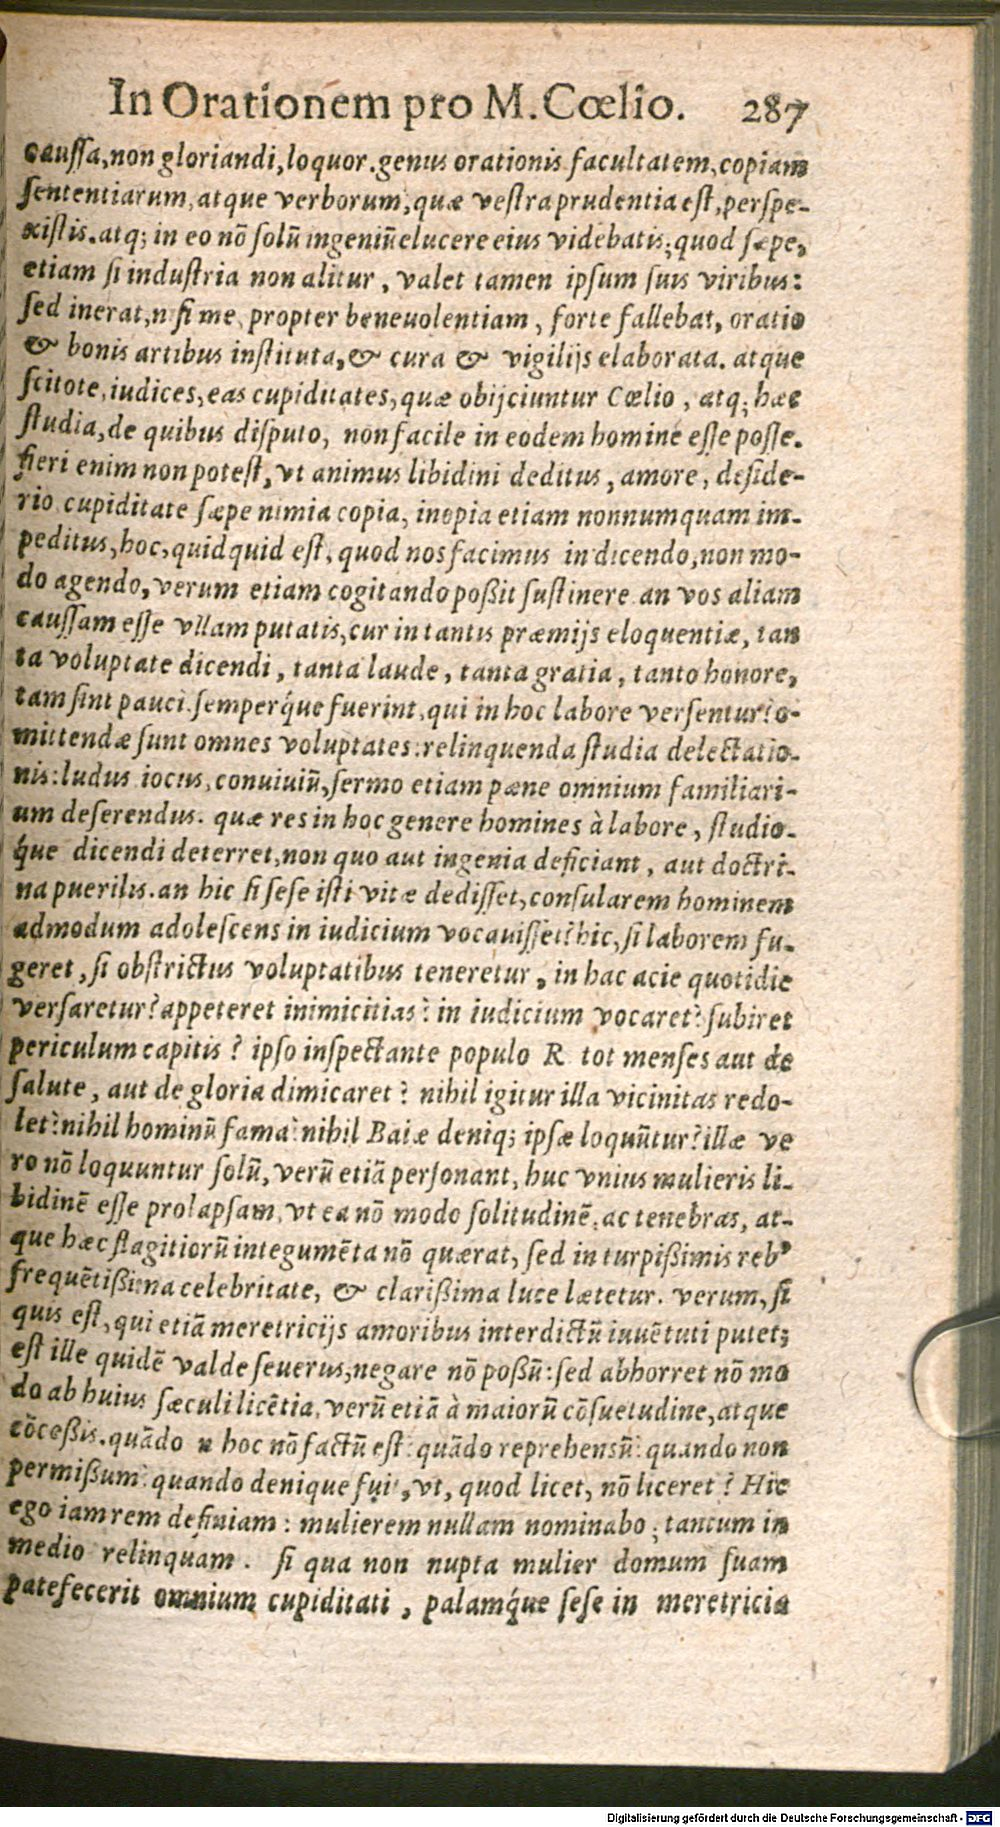 In Orationem pro M. Cœlio. 287
caussa, non gloriandi, loquor. genus orationis. facultatem, copiam
sententiarum, atque verborum, quæ vestra prudentia est, perspe-
xistis. atq; in eo nõ solũ ingeniũ elucere eius videbatis; quod sæpe,
etiam si industria non alitur, valet tamen ipsum suis viribus:
sed inerat, nisi me, propter beneuolentiam, forte fallebat, oratio
& bonis artibus instituta, & cura & vigilijs elaborata. atque
scitote, iudices, eas cupiditates, quæ obijciuntur Cœlio, atq; hæc
studia, de quibus disputo, non facile in eodem homine esse posse.
fieri enim non potest, vt animus libidini deditus, amore, deside-
rio cupiditate sæpe nimia copia, inopia etiam nonnumquam im-
peditus, hoc, quidquid est, quod nos facimus in dicendo, non mo-
do agendo, verum etiam cogitando poßit sustinere. an vos aliam
caussam esse vllam putatis, cur in tantis præmijs eloquentiæ, tan
ta voluptate dicendi, tanta laude, tanta gratia, tanto honore,
tam sint pauci. semperq́ue fuerint, qui in hoc labore versentur? o-
mittendæ sunt omnes voluptates: relinquenda studia delectatio-
nis: ludus iocus, conuiuiũ, sermo etiam pæne omnium familiari-
um deserendus. quæ res in hoc genere homines à labore, studio-
q́ue dicendi deterret, non quo aut ingenia deficiant, aut doctri-
na puerilis. an hic si sese isti vitæ dedisset, consularem hominem
admodum adolescens in iudicium vocauisset? hic, si laborem fu-
geret, si obstrictus voluptatibus teneretur, in hac acie quotidie
versaretur? appeteret inimicitias? in iudicium vocaret? subiret
periculum capitis? ipso inspectante populo R tot menses aut de
salute, aut de gloria dimicaret? nihil igitur illa vicinitas redo-
let? nihil hominũ fama? nihil Baiæ deniq; ipsæ loquũtur? illæ ve
ro nõ loquuntur solũ, verũ etiã personant, huc vnius mulieris li-
bidinẽ esse prolapsam, vt ea nõ modo solitudinẽ, ac tenebras, at-
que hæc flagitiorũ integumẽta nõ quærat, sed in turpißimis rebꝰ
frequẽtißima celebritate, & clarißima luce lætetur. verum, si
quis est, qui etiã meretricijs amoribus interdictũ iuuẽtuti putet;
est ille quidẽ valde seuerus, negare nõ poßũ: sed abhorret nõ mo
do ab huius sæculi licẽtia, verũ etiã à maiorũ cõsuetudine, atque
cõceßis. quãdo n hoc nõ factũ est? quãdo reprehensũ? quando non
permißum? quando denique fuit, vt, quod licet, nõ liceret? Hic
ego iam rem definiam: mulierem nullam nominabo; tantum in
medio relinquam. si qua non nupta mulier domum suam
patefecerit omnium cupiditati, palamq́ue sese in meretricia
Digitalisierung gefördert durch die Deutsche Forschungsgemeinschaft - DFG